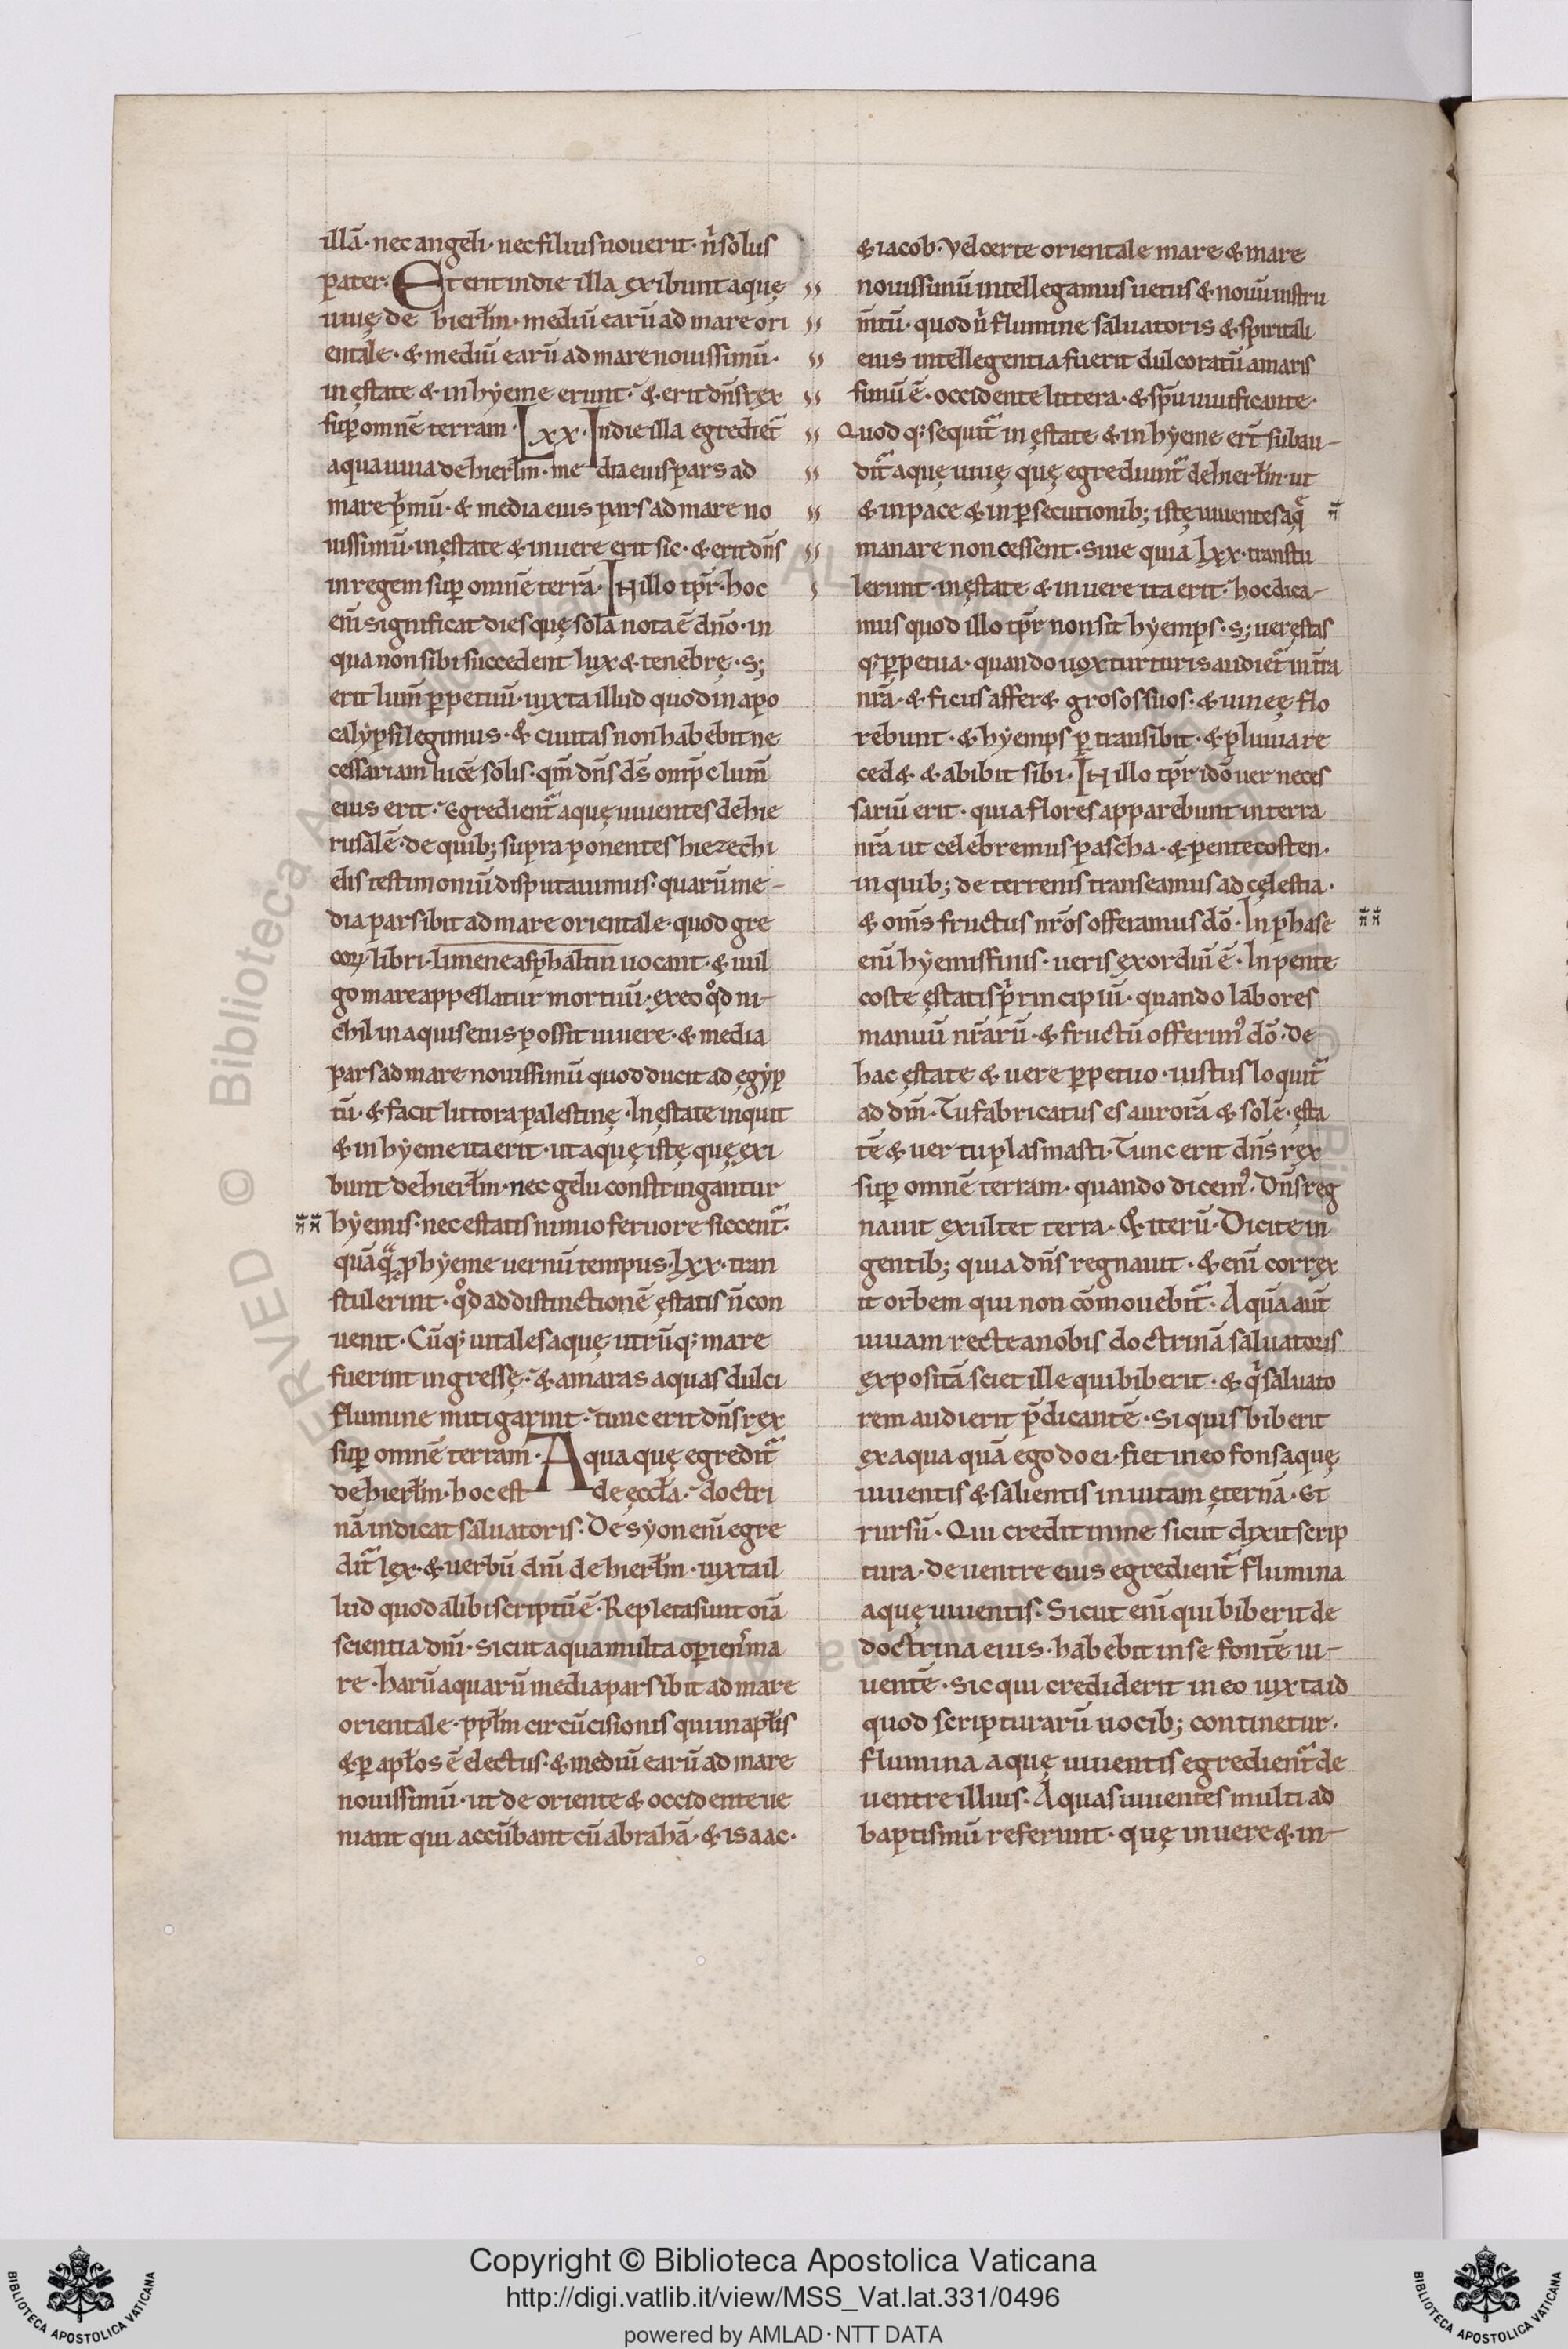 illā· nec angeli· nec filius nouerit· n̄ solus
pater· Et erit in die illa exibunt aquę
uiuę de hierłm· mediū earū ad mare ori
entale· & mediū earū ad mare nouissimū·
in ęstate & in hyeme erunt· & erit dn̄s rex
sup omnē terram· Lxx· In die illa egrediet᷑
aqua uiua de hierłm· me dia eius pars ad
mare pⁱmū· & media eius pars ad mare no
uissimū· in ęstate & in uere erit sic· & erit dn̄s
in regem sup omnē terrā· IN illo tpr̄· hoc
em̄ significat dies quę sola nota ē dn̄o· in
qua non sibi succedent lux & tenebrę· s;
erit lum̄ ꝑpetuū· iuxta illud quod in apo
calypsi legimus· & ciuitas non habebit ne
cessariam lucē solis· qm̄ dn̄s ds̄ omp̄s lum̄
eius erit· Egredient᷑ aquę uiuentes de hie
rusalē· de quib; supra ponentes hiezechi
elis testimoniū disputauimus· quarū me-
dia pars ibit ad mare orientale· quod gre
corꝝ libri· limeneasphaltin uocant· & uul
go mare appellatur mortuū· ex eo qd̊ ni-
chil in aquis eius possit uiuere· & media
pars ad mare nouissimū quod ducit ad egyp
tū· & facit littora palestinę· In ęstate inquit
& in hyeme ita erit· ut aquę istę quę exi
bunt de hierłm· nec gelu constringantur
hyemis· nec estatis nimio feruore siccent᷑·
quāqᷓ ꝓ hyeme uernū tempus· Lxx· tran
stulerint· qd̊ ad distinctionē ęstatis n̄ con
uenit· Cūq; uitales aquę utrūq; mare
fuerint ingressę· & amaras aquas dulci
flumine mitigarint· tunc erit dn̄s rex
sup omnē terram· Aqua quę egredit᷑
de hierłm· hoc est de ęccła· doctri
nā indicat saluatoris· De syon em̄ egre
dit᷑ lex· & uerbū dn̄i de hierłm· iuxta il
lud quod alibi scriptū ē· Repleta sunt om̄a
scientia dn̄i· sicut aqua multa operiens ma
re· harū aquarū media pars ibit ad mare
orientale· ppłm circūcisionis qui in apłis
& ꝑ apłos ē electus· & mediū earū ad mare
nouissimū· ut de oriente & occidente ue
niant qui accūbant cū abrahā· & isaac·
& iacob· Vel certe orientale mare & mare
nouissimū intellegamus uetus & nouū instru
m̄tū· quod nⁱ flumine saluatoris & spiritali
eius intellegentia fuerit dulcoratū amaris
simū ē· occidente littera· & sp̄u uiuificante·
Quod q; sequit᷑ in ęstate & in hyeme ert̄ subau-
dit᷑ aquę uiuę quę egrediunt᷑ de hierłm· ut
& in pace & in ꝑsecutionib; istę uiuentes aqᷓ
manare non cessent· Siue quia Lxx· transtu
lerunt· in ęstate & in uere ita erit· hoc dica-
mus quod illo tpr̄ non sit hyemps· s; uer ęstas
q; ꝑpetua· quando uox turturis audiet᷑ in t̄ra
nr̄a· & ficus affer& grosos suos· & uineę flo
rebunt· & hyemps ꝑtransibit· & pluuia re
ced& & abibit sibi· IN illo tpr̄ idō uer neces
sariū erit· quia flores apparebunt in terra
nr̄a ut celebremus pascha· & pentecosten·
in quib; de terrenis transeamus ad cęlestia·
& om̄s fructus nr̄os offeramus dō· In phase
eni̅ hyemis finis· ueris exordiū ē· In pente
coste ęstatis pⁱncipiū· quando labores
manuū nr̄arū· & fructū offerim᷒ dō· de
hac ęstate & uere ꝑpetuo· iustus loquit᷑
ad dm̄· Tu fabricatus es aurorā & solē· ęsta
tē & uer tu plasmasti· Tunc erit dn̄s rex
sup omnē terram· quando dicem᷒· Dn̄s reg
nauit exultet terra· & iterū· Dicite in
gentib; quia dn̄s regnauit· & eni̅ correx
it orbem qui non cōmouebit᷑· Aquā aut̄
uiuam recte a nobis doctrinā saluatoris
expositā sciet ille qui biberit· & qⁱ saluato
rem audierit p̄dicantē· Si quis biberit
ex aqua quā ego do ei· fiet in eo fons aquę
uiuentis & salientis in uitam ęternā· Et
rursū· Qui credit in me sicut dixit scrip
tura· de uentre eius egredient᷑ flumina
aquę uiuentis· Sicut eni̅ qui biberit de
doctrina eius· habebit in se fontē ui-
uentē· Sic qui crediderit in eo iuxta id
quod scripturarū uocib; continetur·
flumina aquę uiuentis egredient᷑ de
uentre illius· Aquas uiuentes multi ad
baptismū referunt· quę in uere & in-
Copyright © Biblioteca Apostolica Vaticana
http://digi.vatlib.it/view/MSS_Vat.lat.331/0496
powered by AMLAD·NTT DATA
BIBLIOTECA APOSTOLICA VATICANA
BIBLIOTECA APOSTOLICA VATICANA